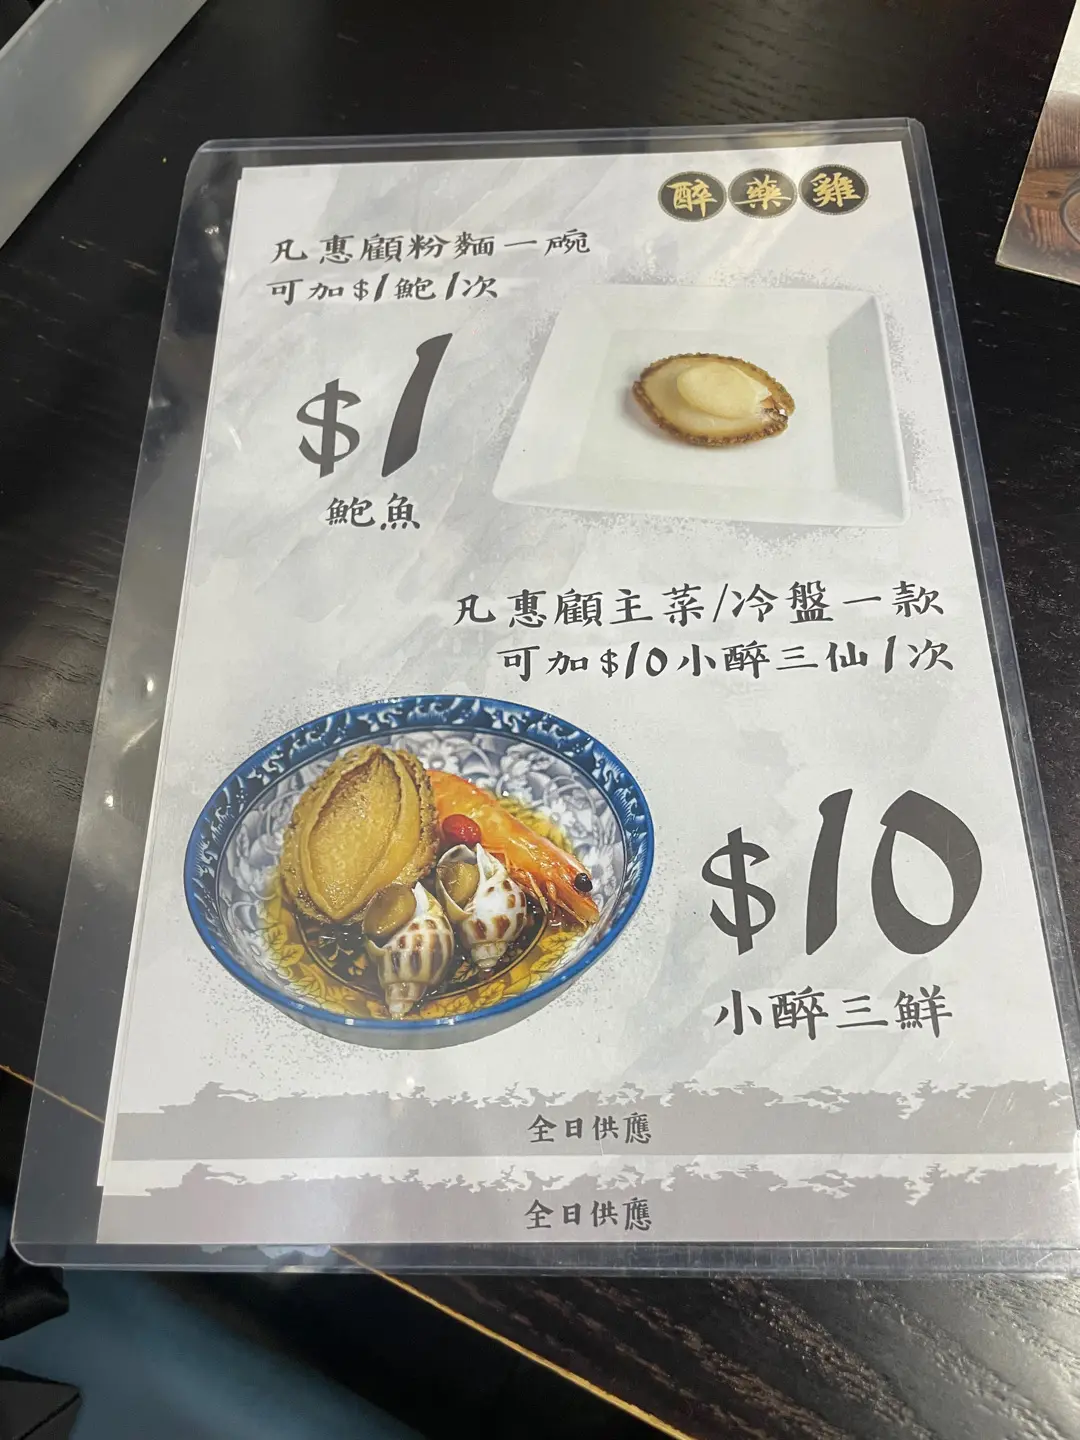 醉藥雞
凡惠顧粉麵一碗
可加$1鮑1次
$1
鮑魚
凡惠顧主菜/冷盤一款
可加$10小醉三仙1次
$10
小醉三鮮
全日供應
全日供應